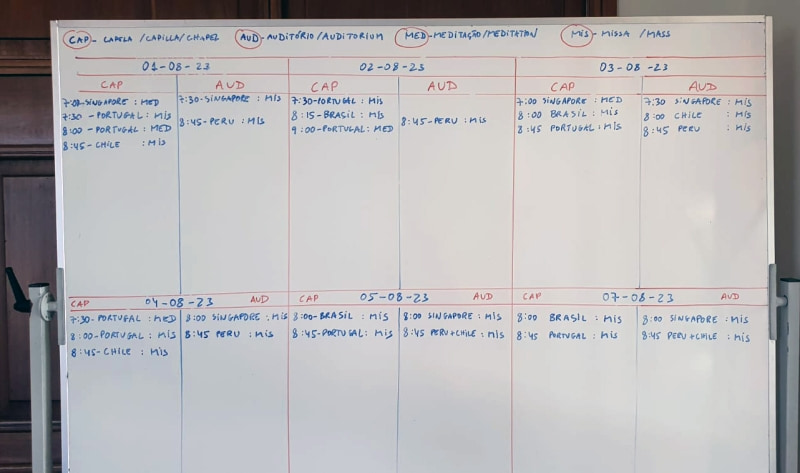 CAP - CAPELA / CAPILLA / CHAPEL AUD - AUDITÓRIO / AUDITORIUM MED - MEDITAÇÃO / MEDITATION MIS - MISSA / MASS
01-08-23
CAP AUD
7:00-SINGAPORE : MED
7:30 - PORTUGAL : MIS
8:00 - PORTUGAL : MED
8:45 - CHILE : MIS
7:30-SINGAPORE : MIS
8:45-PERU : MIS
02-08-23
CAP AUD
7:30-PORTUGAL : MIS
8:15-BRASIL : MIS
9:00-PORTUGAL : MED
8:45-PERU : MIS
03-08-23
CAP AUD
7:00 SINGAPORE : MED
8:00 BRASIL : MIS
8:45 PORTUGAL : MIS
7:30 SINGAPORE : MIS
8:00 CHILE : MIS
8:45 PERU : MIS
CAP 04-08-23 AUD
7:30-PORTUGAL : MED
8:00-PORTUGAL : MIS
8:45-CHILE : MIS
8:00 SINGAPORE : MIS
8:45 PERU : MIS
CAP 05-08-23 AUD
8:00-BRASIL : MIS
8:45-PORTUGAL : MIS
8:00 SINGAPORE : MIS
8:45 PERU+CHILE : MIS
CAP 07-08-23 AUD
8:00 BRASIL : MIS
8:45 PORTUGAL : MIS
8:00 SINGAPORE : MIS
8:45 PERU+CHILE : MIS